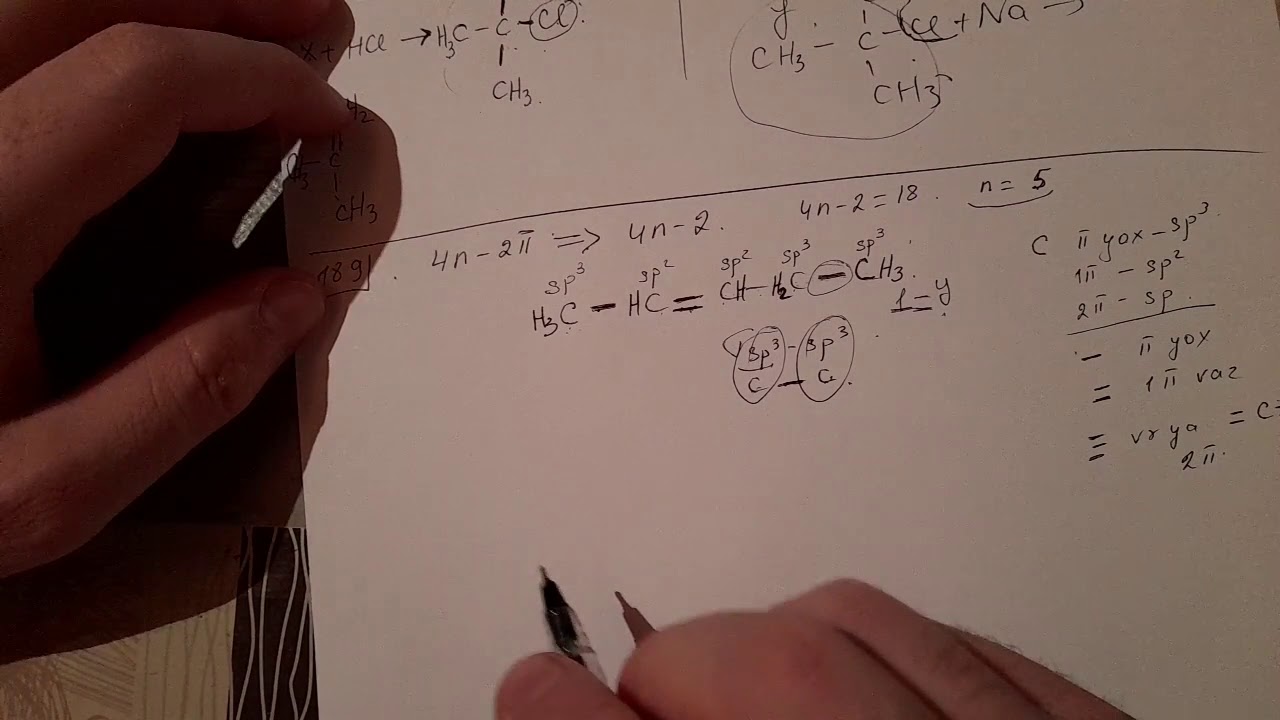 X + HCl → H₃C – C – Cl.
CH₃.
H₂
C
CH₃
y.
CH₃ – C – Cl + Na →
CH₃
189.
4n-2π => 4n-2.
4n-2=18.
n = 5
sp³ sp² sp² sp³ sp³
H₃C – HC = CH – H₂C – CH₃.
1=y
sp³ - sp³
C – C.
C π yox – sp³
1π – sp²
2π – sp.
– π yox
= 1π var
≡ vr ya = C=
2π.